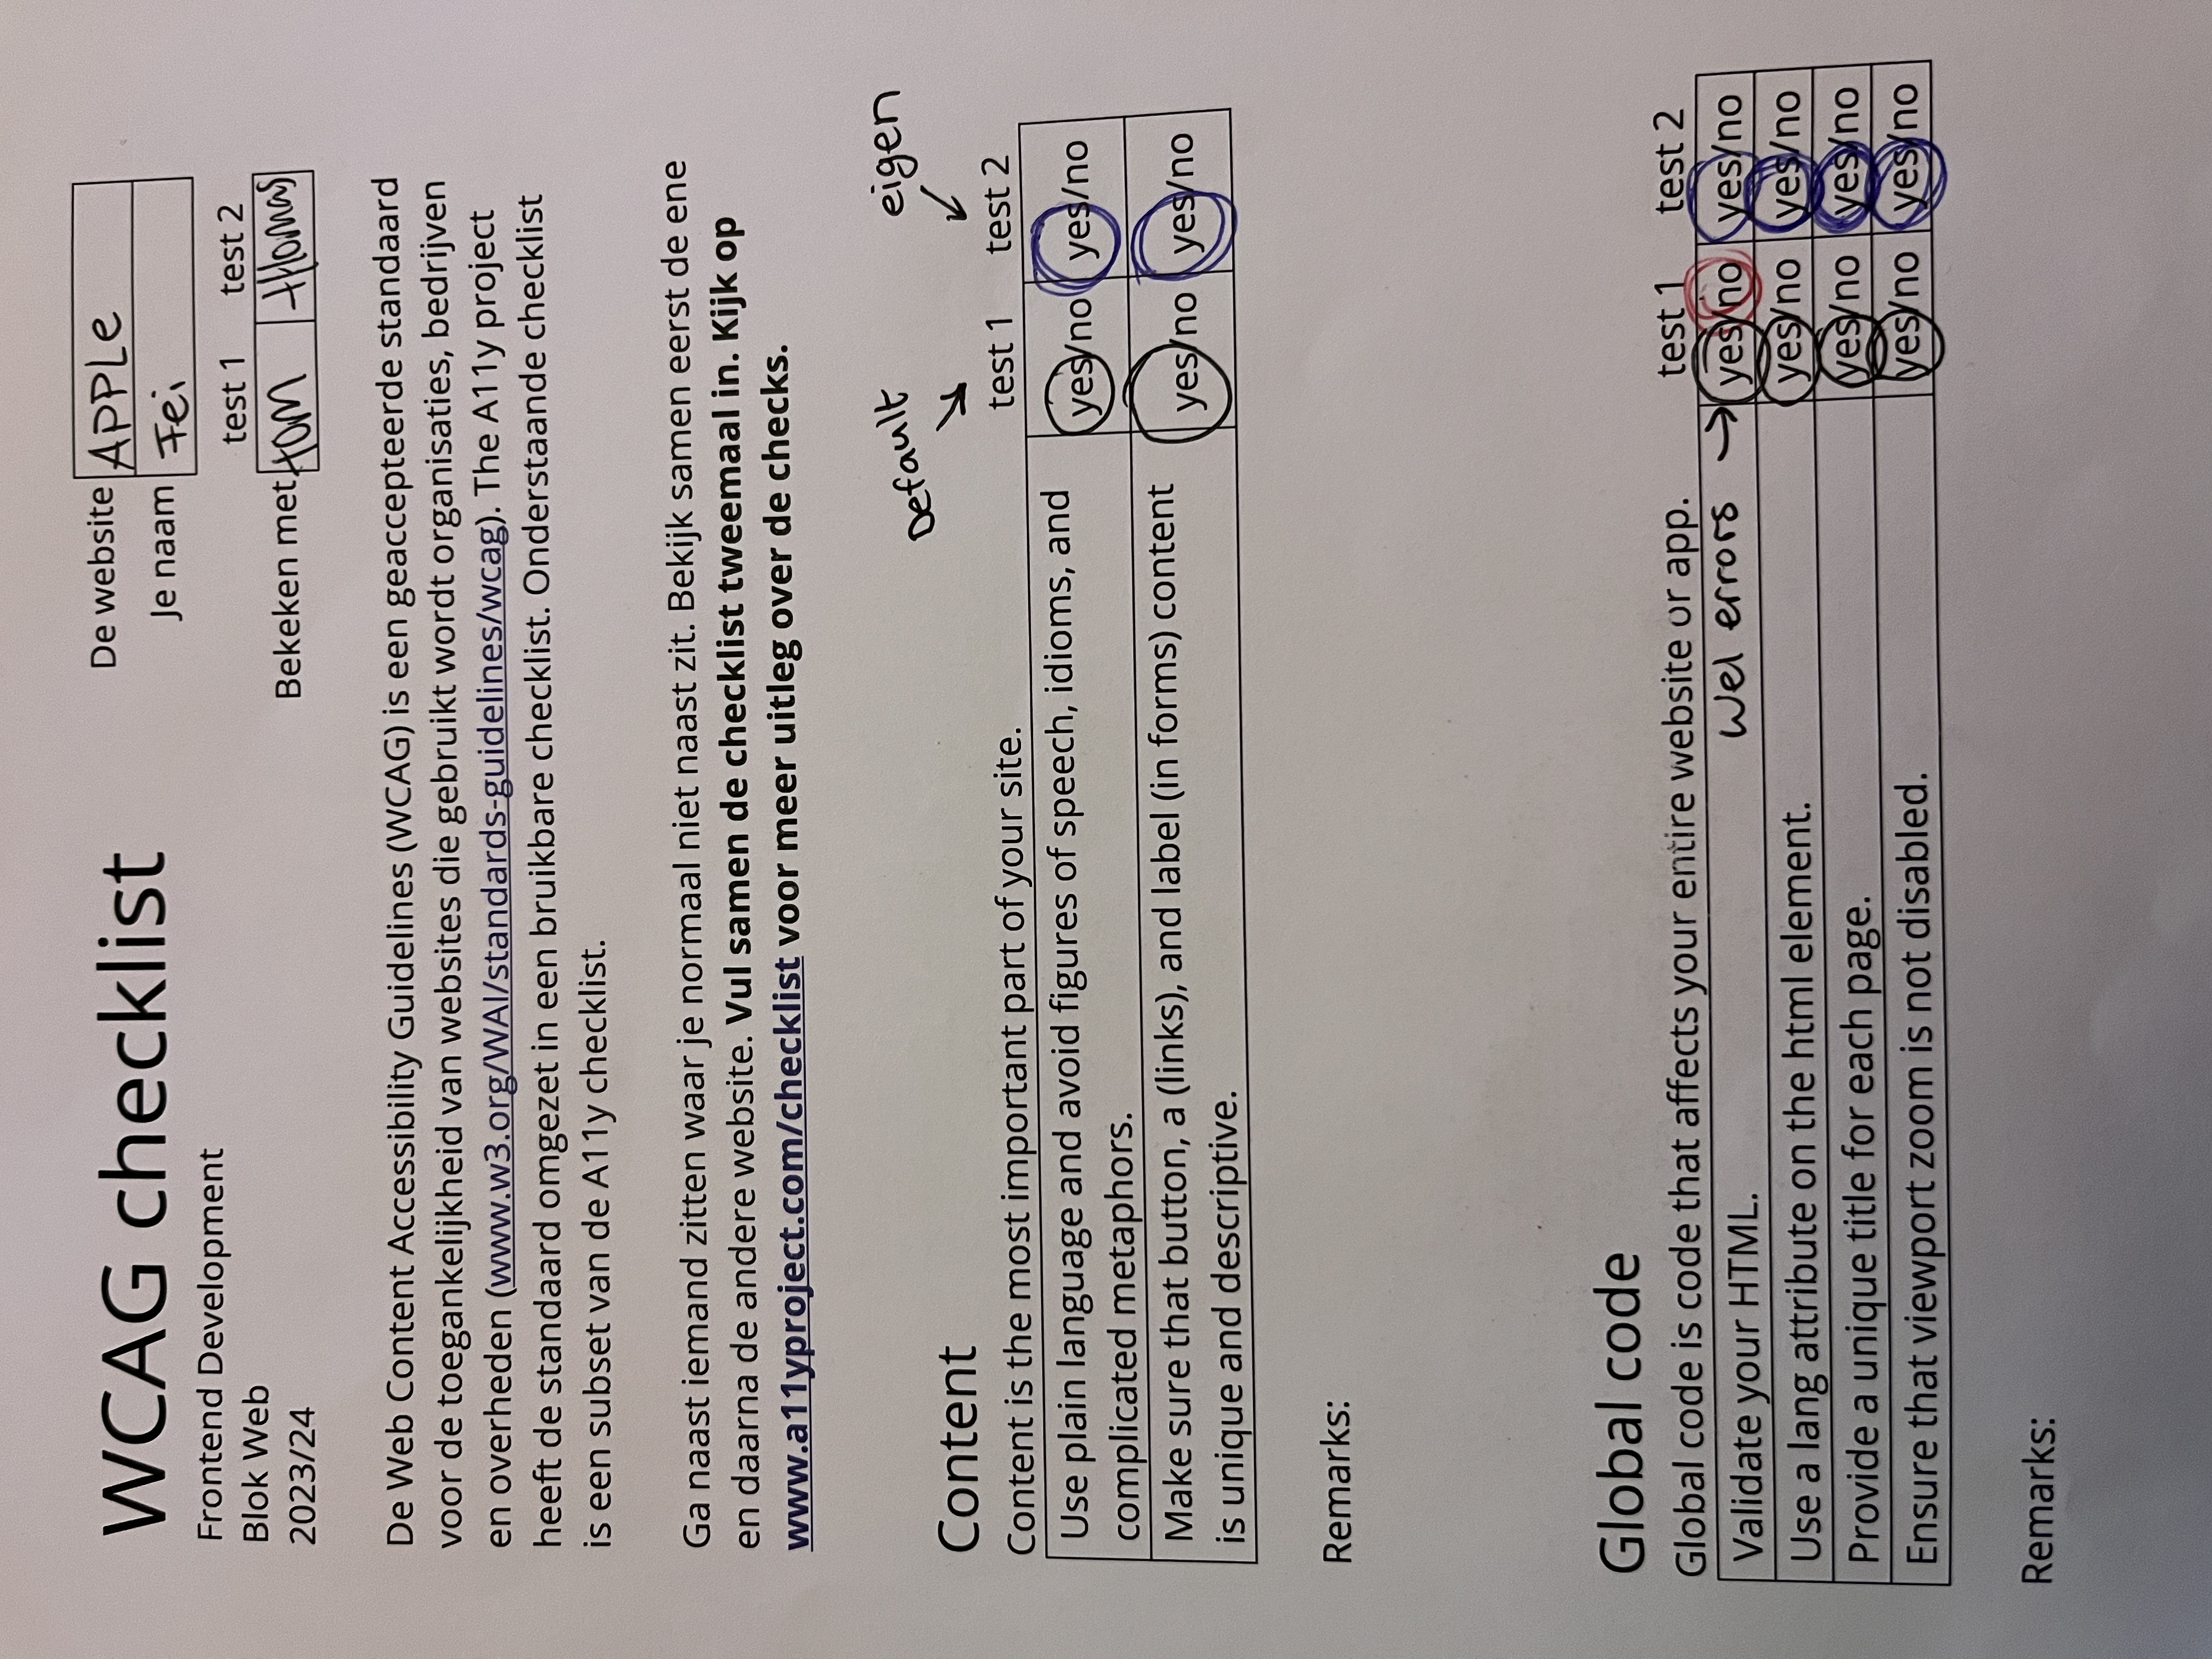 WCAG checklist
Frontend Development
Blok Web
2023/24
De website APPLe
Je naam Fei
test 1 test 2
Bekeken met tom tHomas
De Web Content Accessibility Guidelines (WCAG) is een geaccepteerde standaard
voor de toegankelijkheid van websites die gebruikt wordt organisaties, bedrijven
en overheden (www.w3.org/WAI/standards-guidelines/wcag). The A11y project
heeft de standaard omgezet in een bruikbare checklist. Onderstaande checklist
is een subset van de A11y checklist.
Ga naast iemand zitten waar je normaal niet naast zit. Bekijk samen eerst de ene
en daarna de andere website. Vul samen de checklist tweemaal in. Kijk op
www.a11yproject.com/checklist voor meer uitleg over de checks.
Default eigen
Content
Content is the most important part of your site. test 1 test 2
Use plain language and avoid figures of speech, idioms, and
complicated metaphors. yes/no yes/no
Make sure that button, a (links), and label (in forms) content
is unique and descriptive. yes/no yes/no
Remarks:
Global code
Global code is code that affects your entire website or app. test 1 test 2
Validate your HTML. Wel errors yes/no yes/no
Use a lang attribute on the html element. yes/no yes/no
Provide a unique title for each page. yes/no yes/no
Ensure that viewport zoom is not disabled. yes/no yes/no
Remarks: